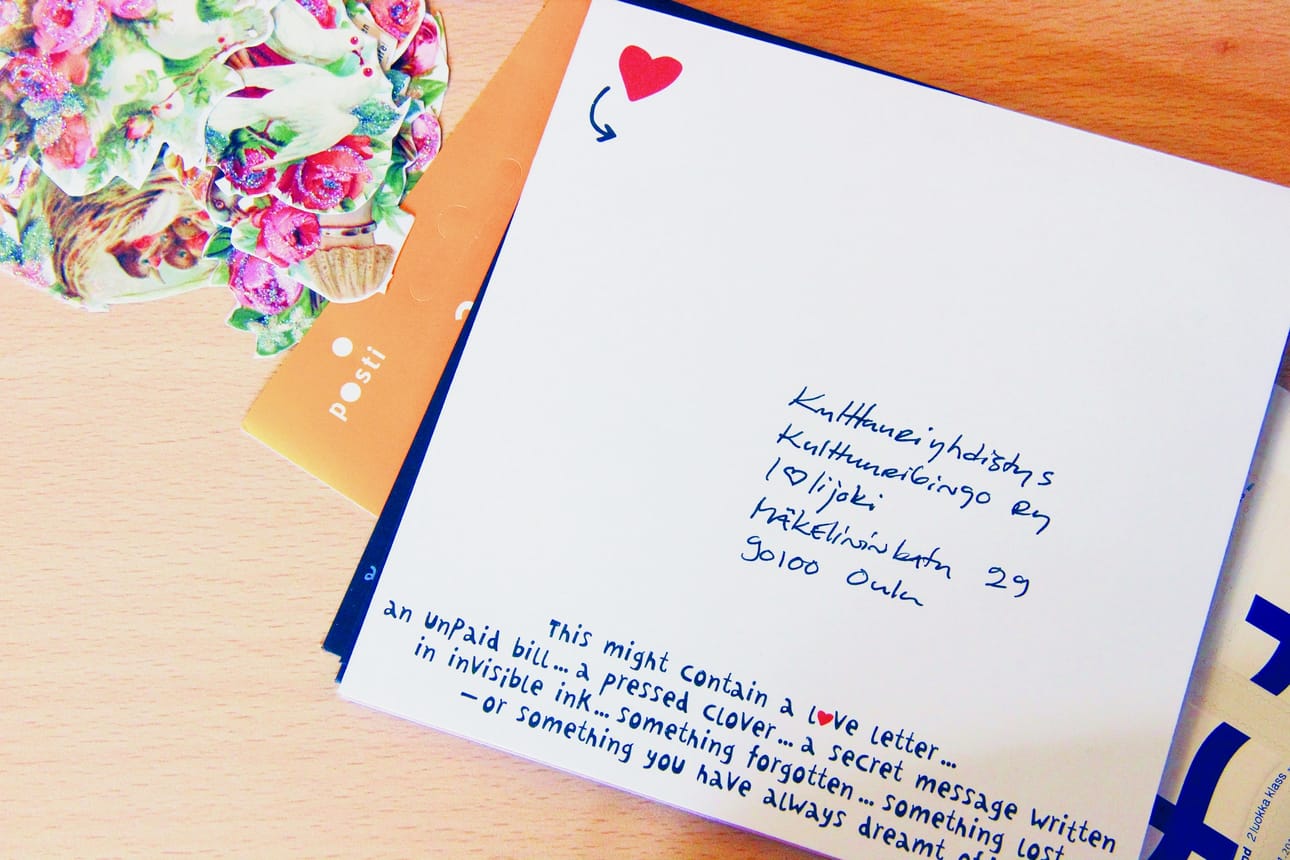 posti
Kulttuuriyhdistys
Kulttuuribingo Ry
I ♡ Iijoki
Mäkelininkatu 29
90100 Oulu
This might contain a l♥ve letter...
an unpaid bill... a pressed clover... a secret message written
in invisible ink... something forgotten... something lost
– or something you have always dreamt of
2 luokka klass